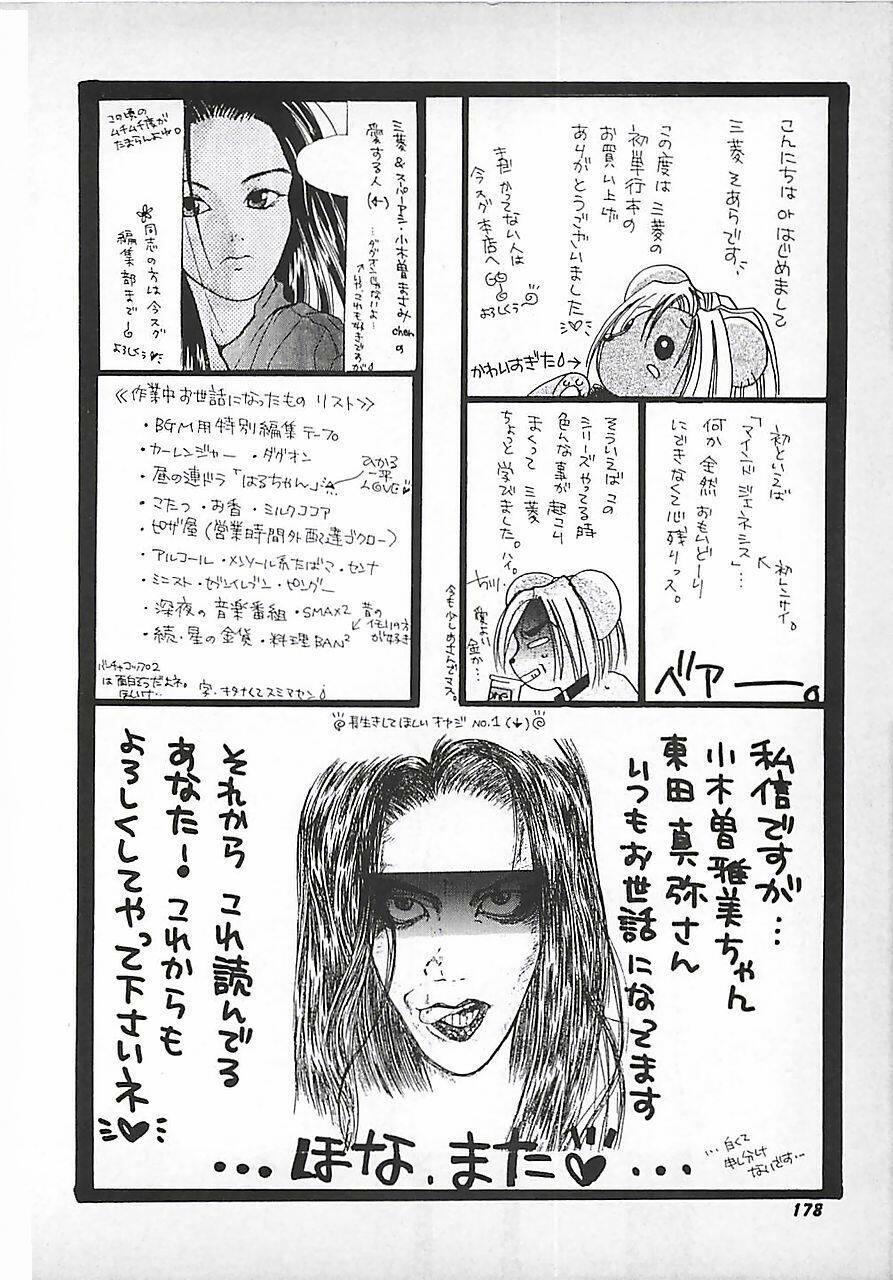 こんにちは or はじめまして
三菱 そあらです。
この度は 三菱の
初単行本の
お買い上げ
ありがとうございました
まだ かってない人は
今スグ 本店へGO GO
よろしくぅ
かわいすぎた
初といえば
「マインド ジェネシス」…
初レンサイ。
何か 全然 おもいどーり
にできなくて心残りっス。
ベアー。
そういえば この
シリーズやってる時
色んな事が 起こり
まくって 三菱
ちょっと 学びました。ハイ。
愛よい
金か…
今も少し めさんでマス。
三菱 & スーパーアシ・小木曽 まさみchanの
愛する人 (←)
…ダグオンじゃないよ…
これも好きですが
この頃の
ムチムチ度が
たまらんよね。
同志の方は 今スグ
編集部まで
よろしくぅ
≪作業中お世話になったもの リスト≫
・BGM用特別編集テープ
・カーレンジャー・ダグオン
・昼の連ドラ「はるちゃん」
ひかる
一平
LOVE
・こたつ・お香・ミルクココア
・ピザ屋(営業時間外配達ゴクロー)
・アルコール・メンソール系たばこ・センナ
・ミニスト・セブンイレブン・ピングー
・深夜の音楽番組・SMAX2
・続・星の金貨・料理BAN²
昔の
イモリの方
が好き
は面白そうだよネ。
ほしいナ…
字・キタナくてスミマセン
長生きしてほしい オヤジ NO.1 (↓)
私信ですが…
小木曽雅美ちゃん
東田真弥さん
いつもお世話になってます
それから これ読んでる
あなた! これからも
よろしくしてやって下さいネ
…ほな、また…
…白くて
申し分け
ないです…
178